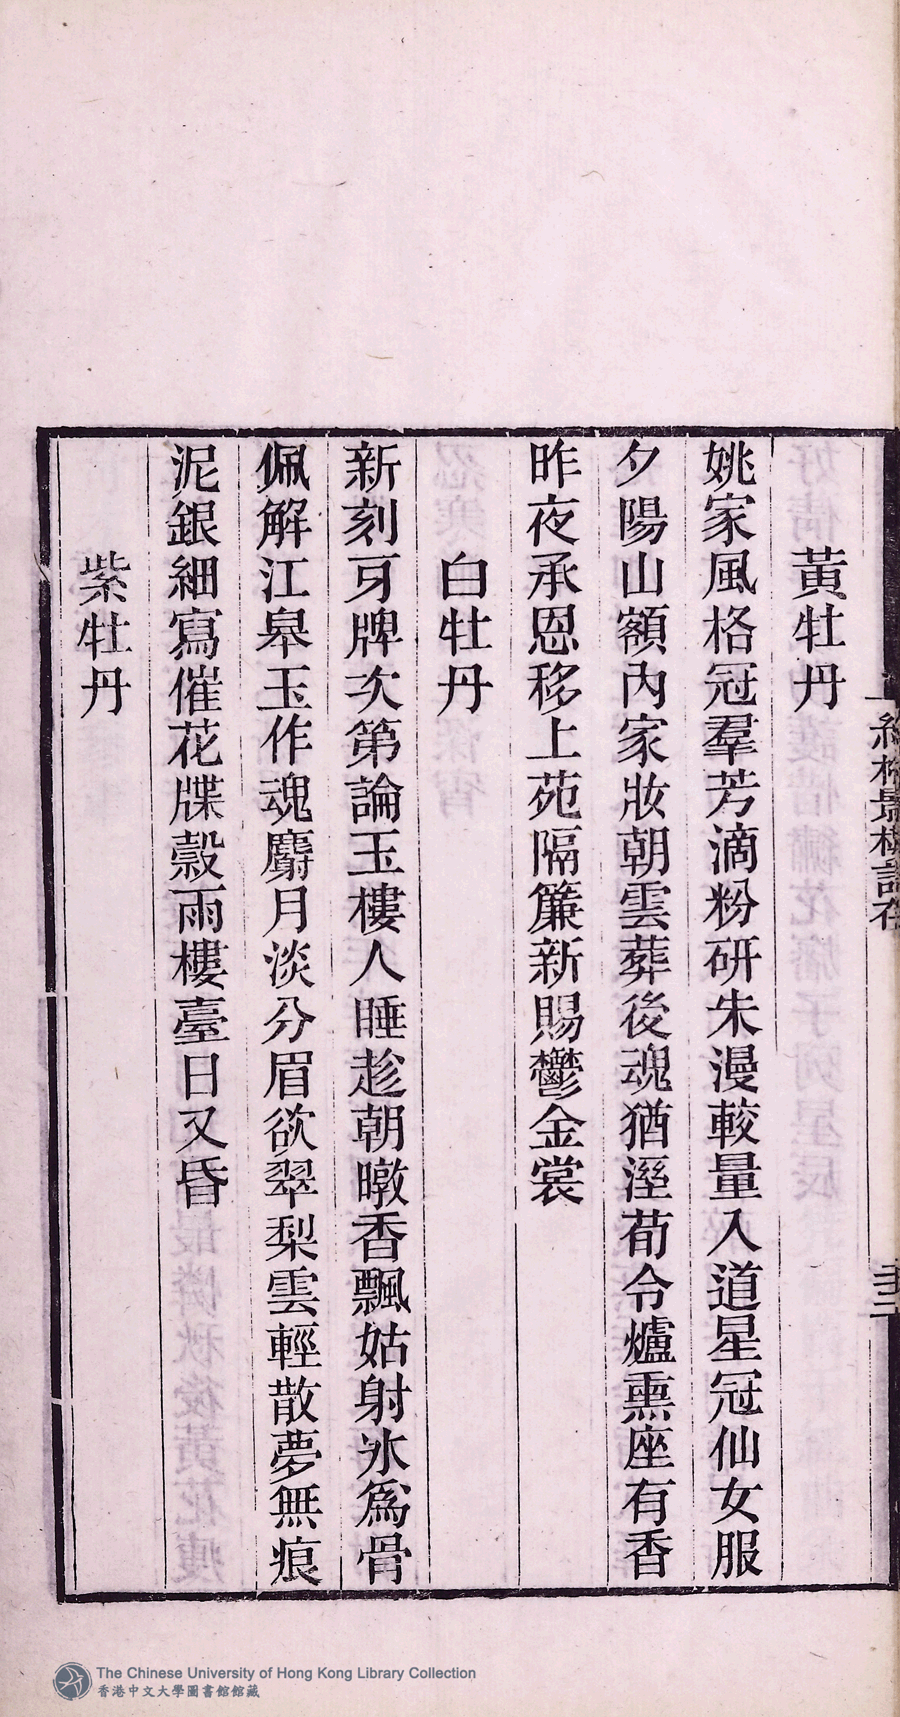 黃牡丹
姚家風格冠羣芳滴粉研朱漫較量入道星冠仙女服
夕陽山額內家妝朝雲葬後魂猶溼荀令爐熏座有香
昨夜承恩移上苑隔簾新賜鬱金裳
白牡丹
新刻牙牌次第論玉樓人睡趁朝暾香飄姑射冰爲骨
佩解江皋玉作魂麝月淡分眉欲翠梨雲輕散夢無痕
泥銀細寫催花牒縠雨樓臺日又昏
紫牡丹
The Chinese University of Hong Kong Library Collection
香港中文大學圖書館館藏